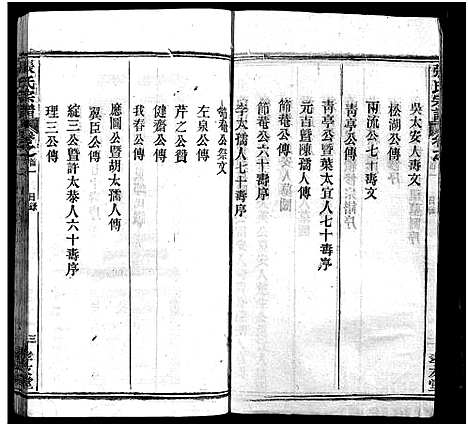 吳太安人壽文
松湖公傳
兩流公七十壽文
靑亭公傳
靑亭公暨葉太宜人七十壽序
元吉暨陳孺人傳
節菴公傳
節菴公六十壽序
李太孺人七十壽序
節菴公祭文
左泉公傳
芹之公贊
健齋公傳
我春公傳
應圖公暨胡太孺人傳
翼臣公傳
綻三公暨許太恭人六十壽序
理三公傳
張氏宗譜
目錄
三
孝友堂